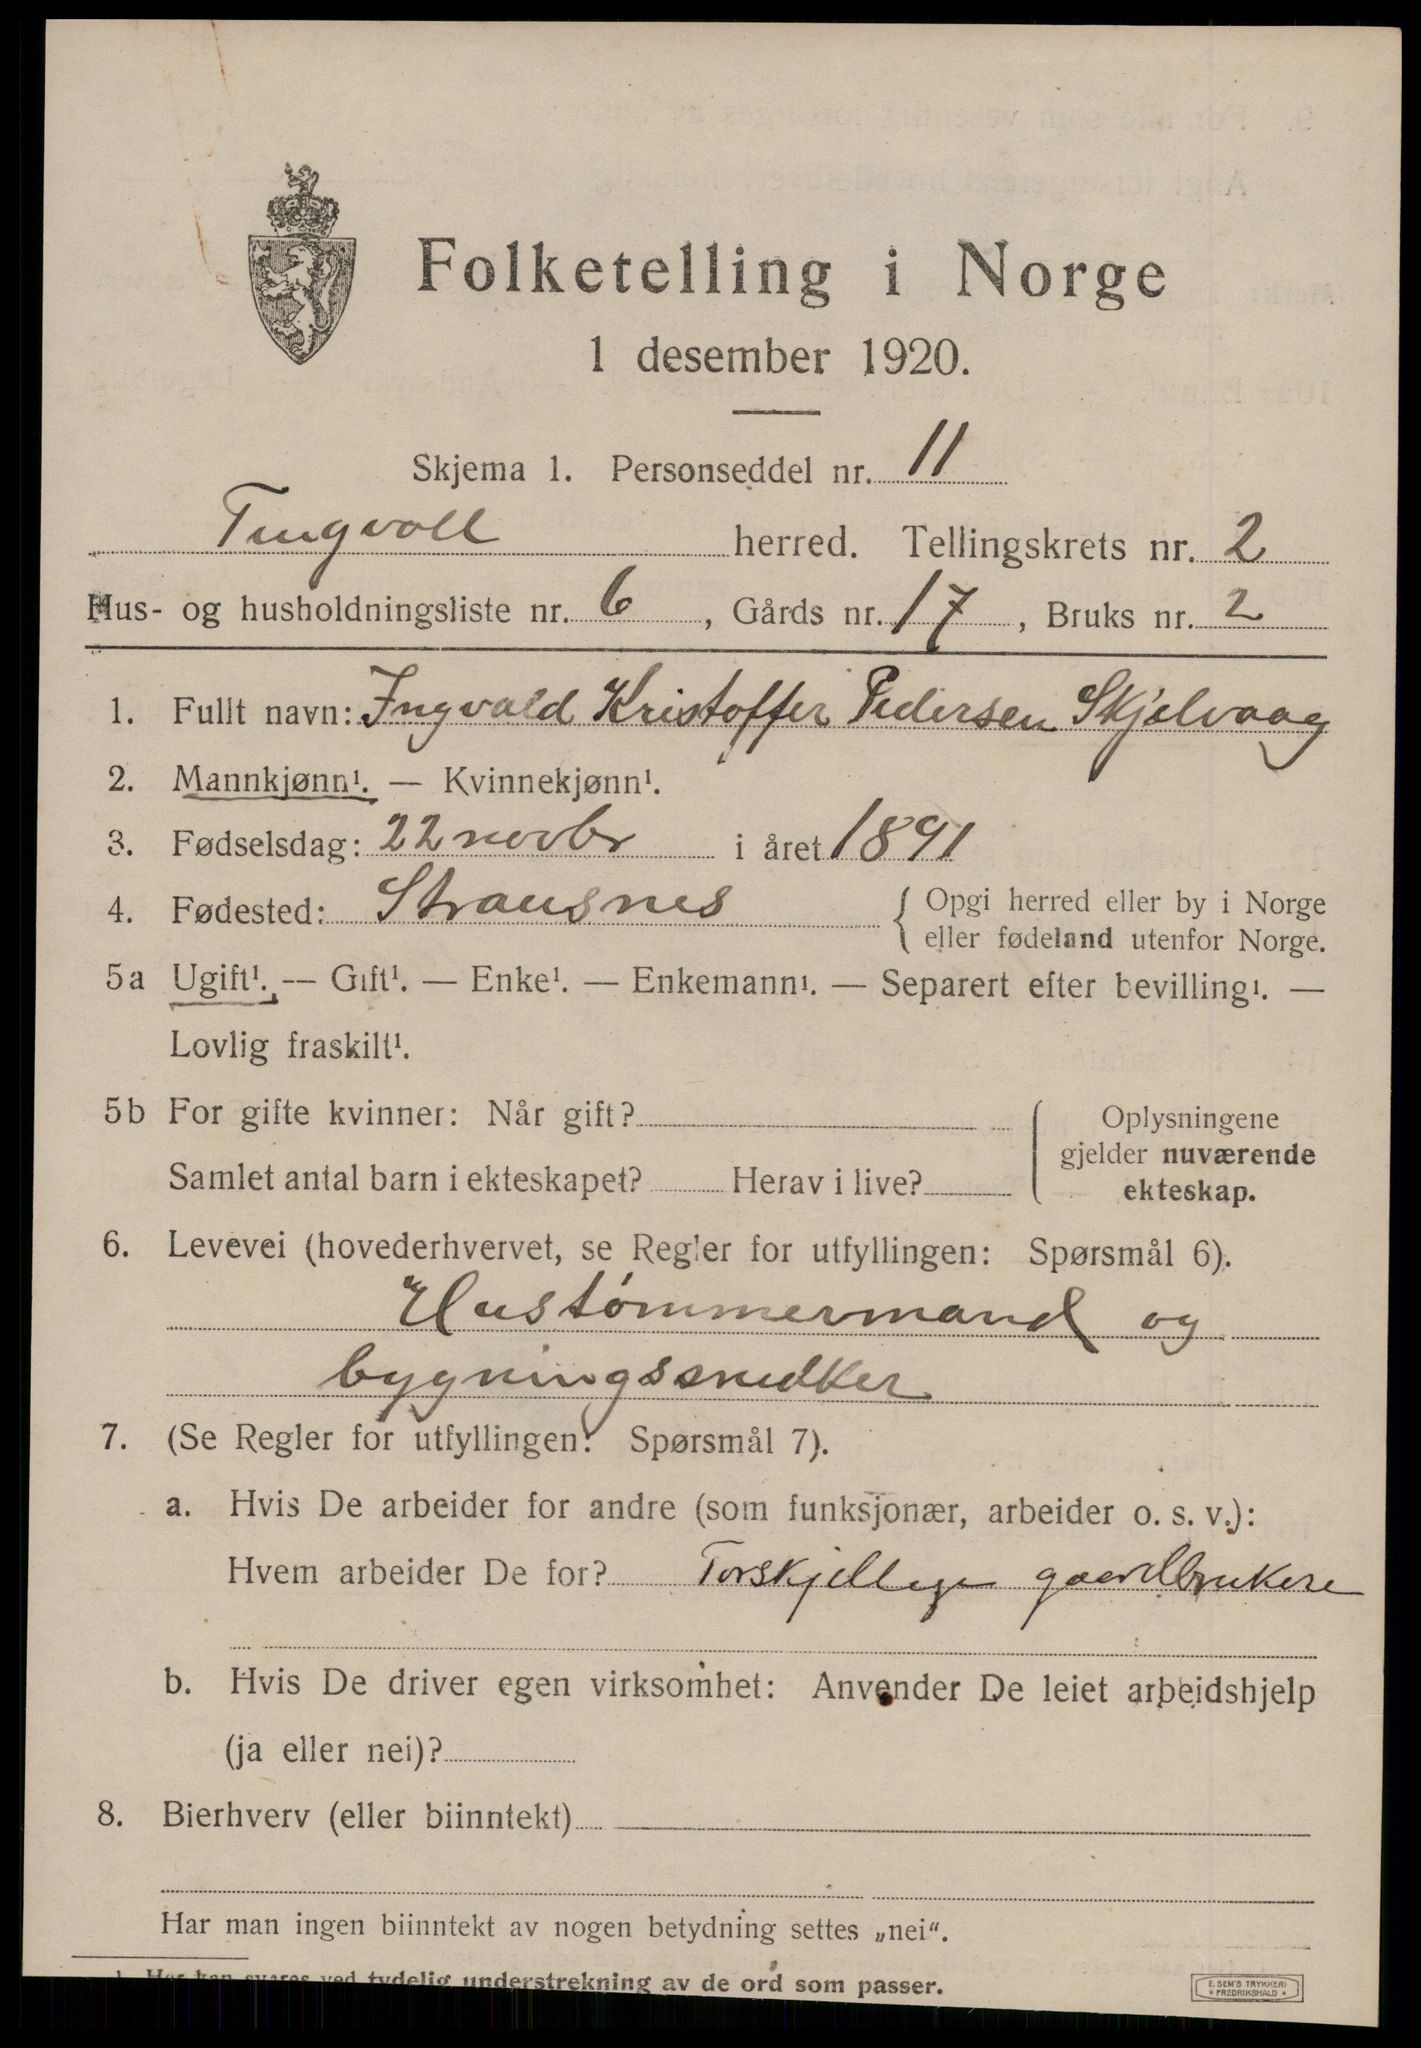 Folketelling i Norge
1 desember 1920.
Skjema 1. Personseddel nr. 11
Tingvoll herred. Tellingskrets nr. 2
Hus- og husholdningsliste nr. 6, Gårds nr. 17, Bruks nr. 2
1. Fullt navn: Ingvald Kristoffer Pedersen Skjølvaag
2. Mannkjønn¹. — Kvinnekjønn¹.
3. Fødselsdag: 22 novbr i året 1891
4. Fødested: Strausnes { Opgi herred eller by i Norge
eller fødeland utenfor Norge.
5a Ugift¹. — Gift¹. — Enke¹. — Enkemann¹. — Separert efter bevilling¹. —
Lovlig fraskilt¹.
5b For gifte kvinner: Når gift?
Samlet antal barn i ekteskapet? Herav i live?
Oplysningene
gjelder nuværende
ekteskap.
6. Levevei (hovederhvervet, se Regler for utfyllingen: Spørsmål 6).
Hustømmermand og
bygningssnedker
7. (Se Regler for utfyllingen: Spørsmål 7).
a. Hvis De arbeider for andre (som funksjonær, arbeider o. s. v.):
Hvem arbeider De for? Forskjellige gaardbrukere
b. Hvis De driver egen virksomhet: Anvender De leiet arbeidshjelp
(ja eller nei)?
8. Bierhverv (eller biinntekt)
Har man ingen biinntekt av nogen betydning settes „nei".
1. Her kan svares ved tydelig understrekning av de ord som passer.
E. SEM'S TRYKKERI
* FREDRIKSHALD *